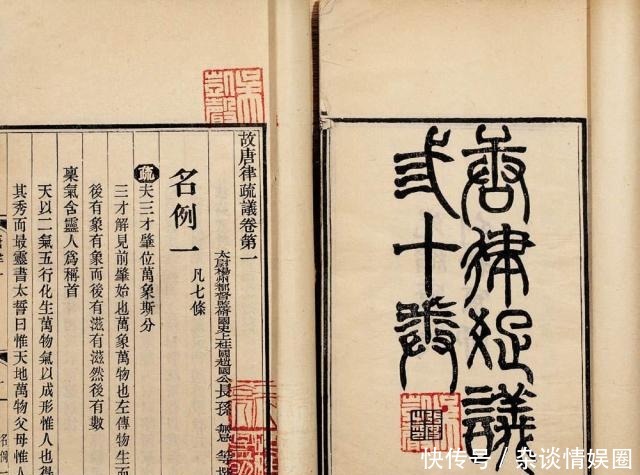 唐律疏議
弎十卷
故唐律疏議卷第一
太尉揚州都督監修國史上柱國趙國公長孫無忌等撰
名例一 凡七條
疏夫三才肇位萬象斯分
三才解見前肇始也萬象萬物也左傳物生
後有象有象而後有滋有滋然後有數
稟氣含靈人爲稱首
天以二氣五行化生萬物氣以成形惟人也
其秀而最靈書太誓曰惟天地萬物父母惟
名例
快传号/杂谈情娱圈